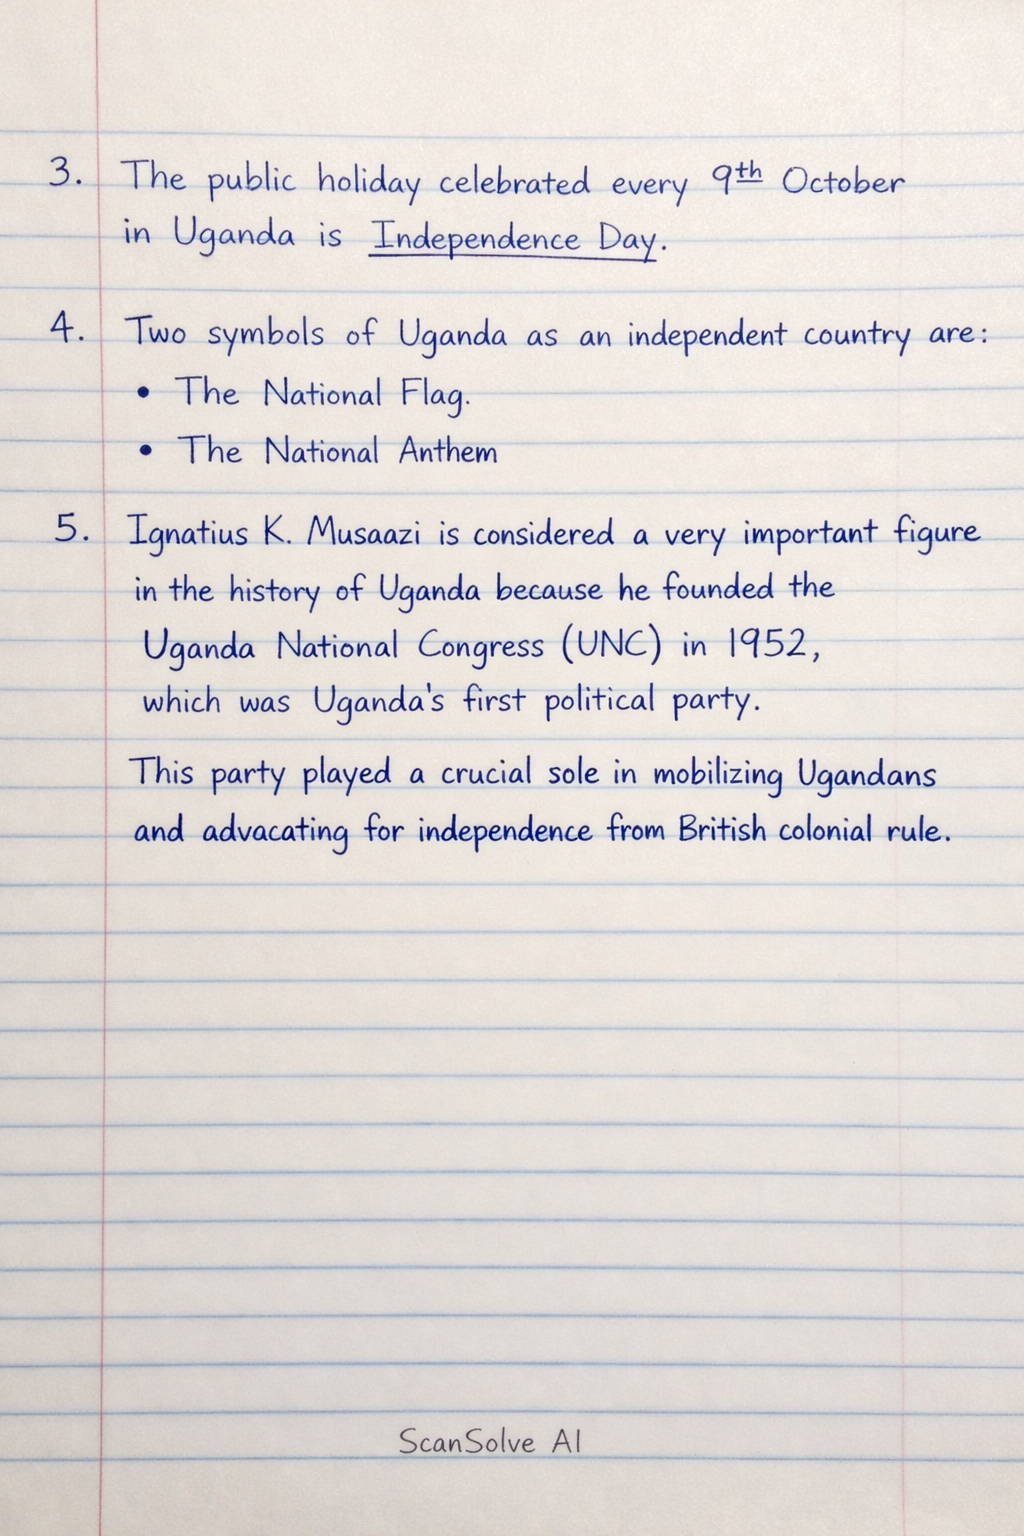 3. The public holiday celebrated every 9th October
in Uganda is Independence Day.
4. Two symbols of Uganda as an independent country are:
• The National Flag.
• The National Anthem
5. Ignatius K. Musaazi is considered a very important figure
in the history of Uganda because he founded the
Uganda National Congress (UNC) in 1952,
which was Uganda's first political party.
This party played a crucial sole in mobilizing Ugandans
and advacating for independence from British colonial rule.
ScanSolve AI